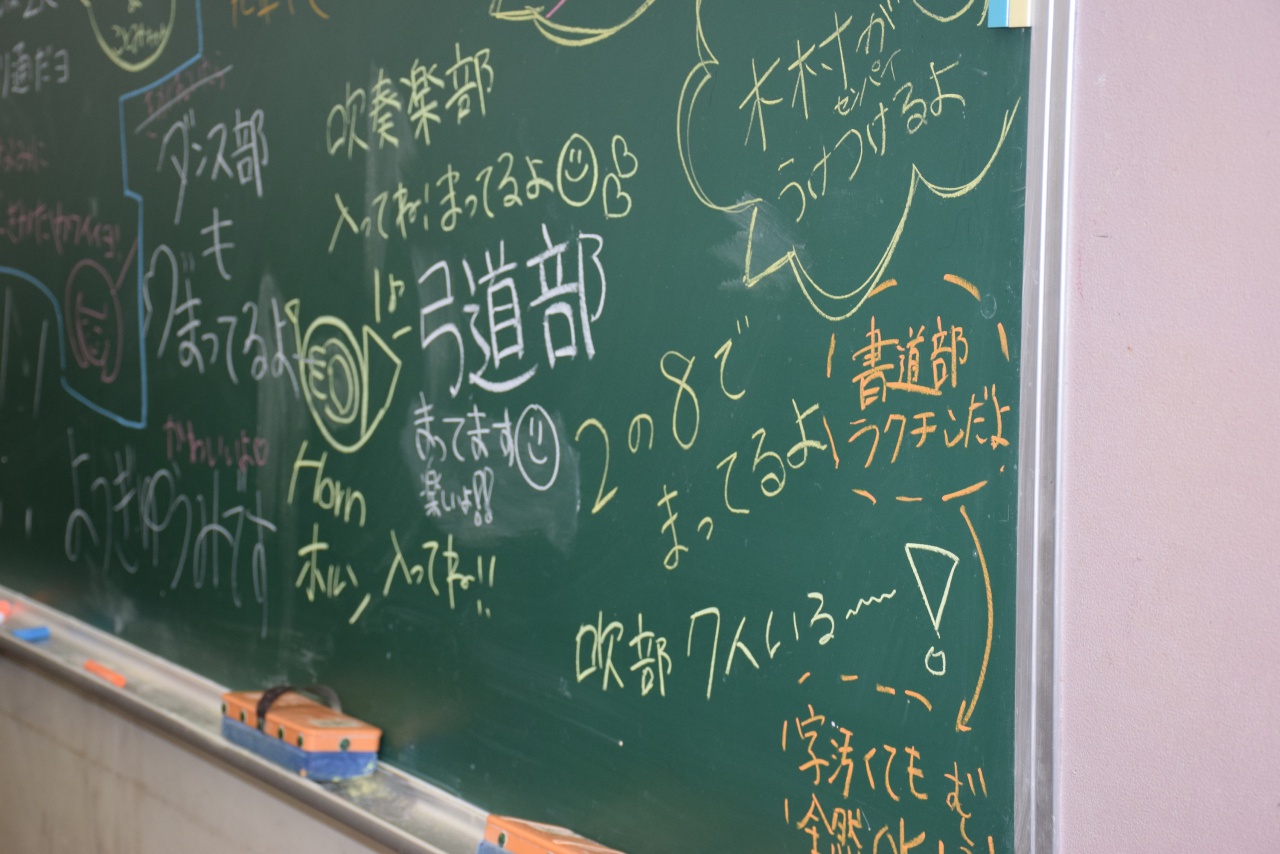 吹奏楽部
入ってね!まってるよ
木村が
センパイ
うけつけるよ
ダンス部
も
まってるよ
弓道部
まってます
楽しいよ!!
2の8で
まってるよ
書道部
ラクチンだよ
かわいいよ
Horn
ホルン 入ってね!!
吹部 7人いる〜
字汚くても
全然OK